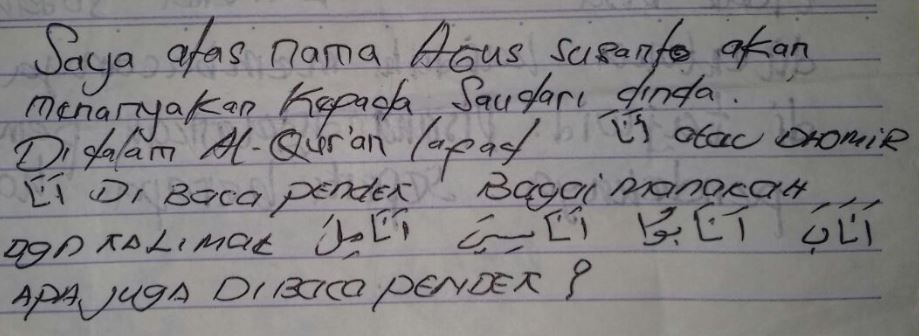 Saya atas nama Agus Susanto akan
menanyakan Kepada Saudari dinda.
Didalam Al-Qur'an lapad اَنَا atau DHOMIR
اَنَا Di Baca pender Bagaimanakah
DGN KALimat اَنَامِلَ اَنَاسِيَ اَنَابُوْا اَنَابَ
APA JUGA DIBACA PENDEK ?